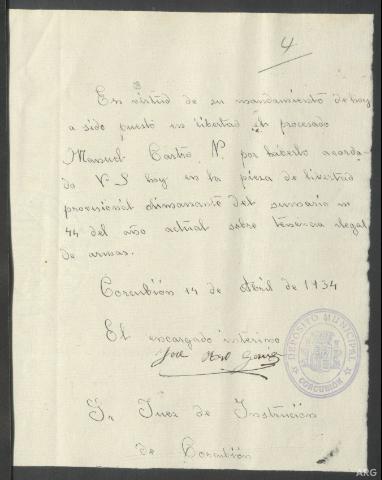 4
En virtud de su mandamiento de hoy
a sido puesto en libertad el procesado
Manuel Castro N. por haberlo acorda-
do V-S hoy en la pieza de livertad
provisional dimanante del sumario n
44 del año actual sobre tenencia ilegal
de armas.
Corcubión 14 de Abril de 1934
El encargado interino
José
DEPOSITO MUNICIPAL
CORCUBION
Sr Juez de Instrución
de Corcubión
ARG